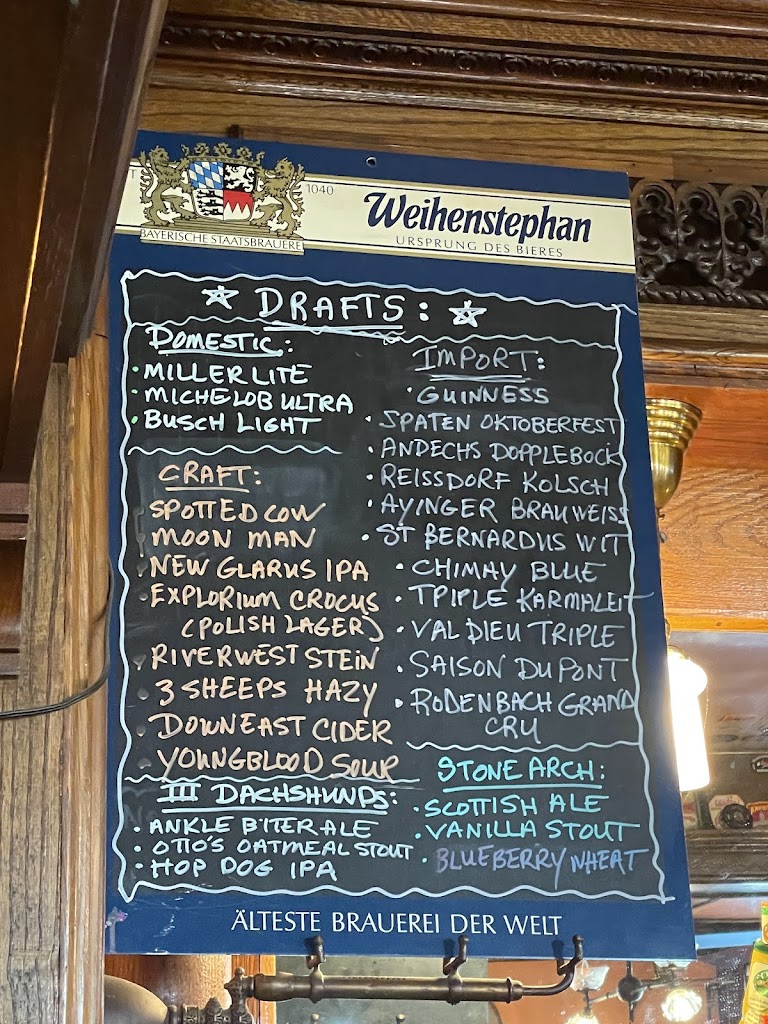 T
1040
BAYERISCHE STAATSBRAUEREI
Weihenstephan
URSPRUNG DES BIERES
☆ DRAFTS: ☆
DOMESTIC:
• MILLER LITE
• MICHELOB ULTRA
• BUSCH LIGHT
CRAFT:
• SPOTTED COW
• MOON MAN
• NEW GLARUS IPA
• EXPLORIUM CROCUS
(POLISH LAGER)
• RIVERWEST STEIN
• 3 SHEEPS HAZY
• DOWNEAST CIDER
• YOUNGBLOOD SOUR
III DACHSHUNDS:
• ANKLE BITER ALE
• OTTO'S OATMEAL STOUT
• HOP DOG IPA
IMPORT:
• GUINNESS
• SPATEN OKTOBERFEST
• ANDECHS DOPPLEBOCK
• REISSDORF KOLSCH
• AYINGER BRAUWEISS
• ST BERNARDUS WIT
• CHIMAY BLUE
• TPIPLE KARMALEIT
• VAL DIEU TRIPLE
• SAISON DUPONT
• RODENBACH GRAND
CRU
STONE ARCH:
• SCOTTISH ALE
• VANILLA STOUT
• BLUEBERRY WHEAT
ÄLTESTE BRAUEREI DER WELT